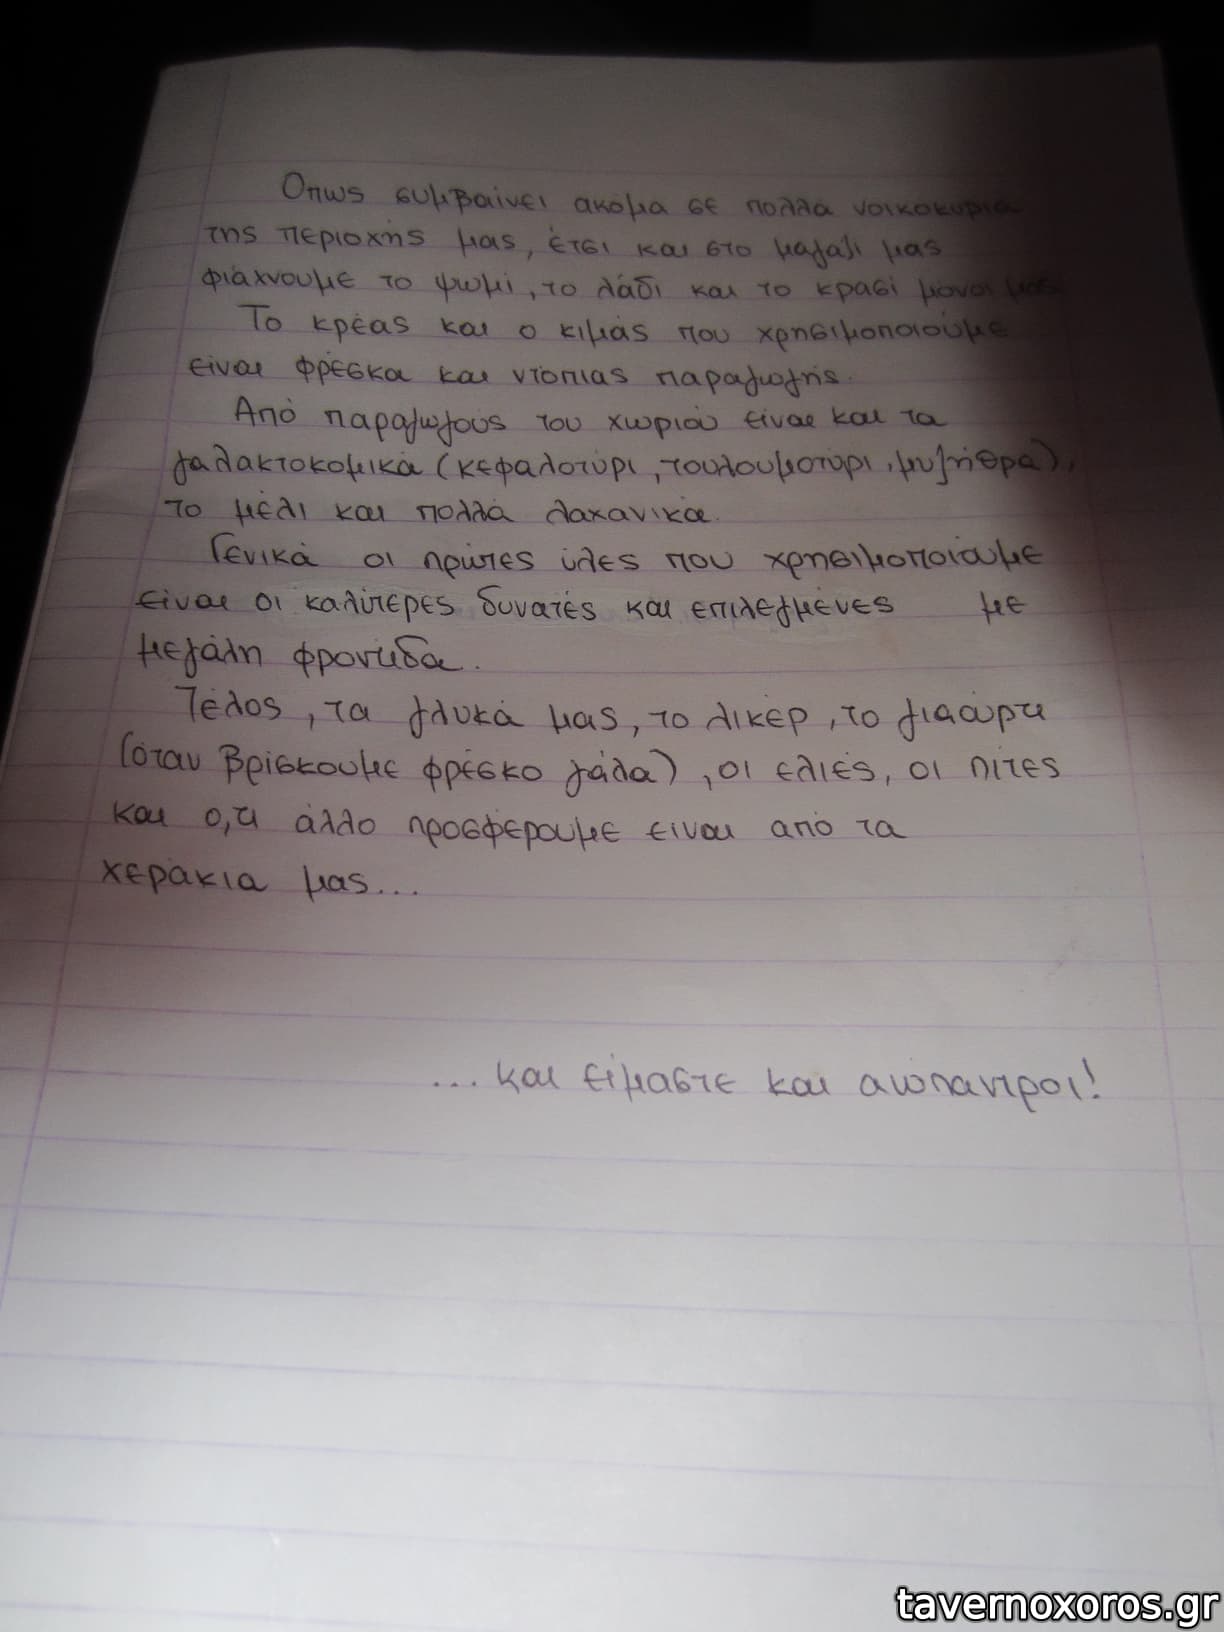 Οπως συμβαίνει ακόμα σε πολλά νοικοκυριά
της περιοχής μας, έτσι και στο μαγαζί μας
φιάχνουμε το ψωμί, το λάδι και το κρασί μόνοι μας.
Το κρέας και ο κιμάς που χρησιμοποιούμε
είναι φρέσκα και ντόπιας παραγωγής.
Από παραγωγούς του χωριού είναι και τα
γαλακτοκομικά (κεφαλοτύρι, τουλουμοτύρι, μυζήθρα),
το μέλι και πολλά λαχανικά.
Γενικά οι πρώτες ύλες που χρησιμοποιούμε
είναι οι καλύτερες δυνατές και επιλεγμένες με
μεγάλη φροντίδα.
Τέλος, τα γλυκά μας, το λικέρ, το γιαούρτι
(όταν βρίσκουμε φρέσκο γάλα), οι ελιές, οι πίτες
και ο,τι άλλο προσφέρουμε είναι από τα
χεράκια μας...
... και είμαστε και ανύπαντροι!
tavernoxoros.gr